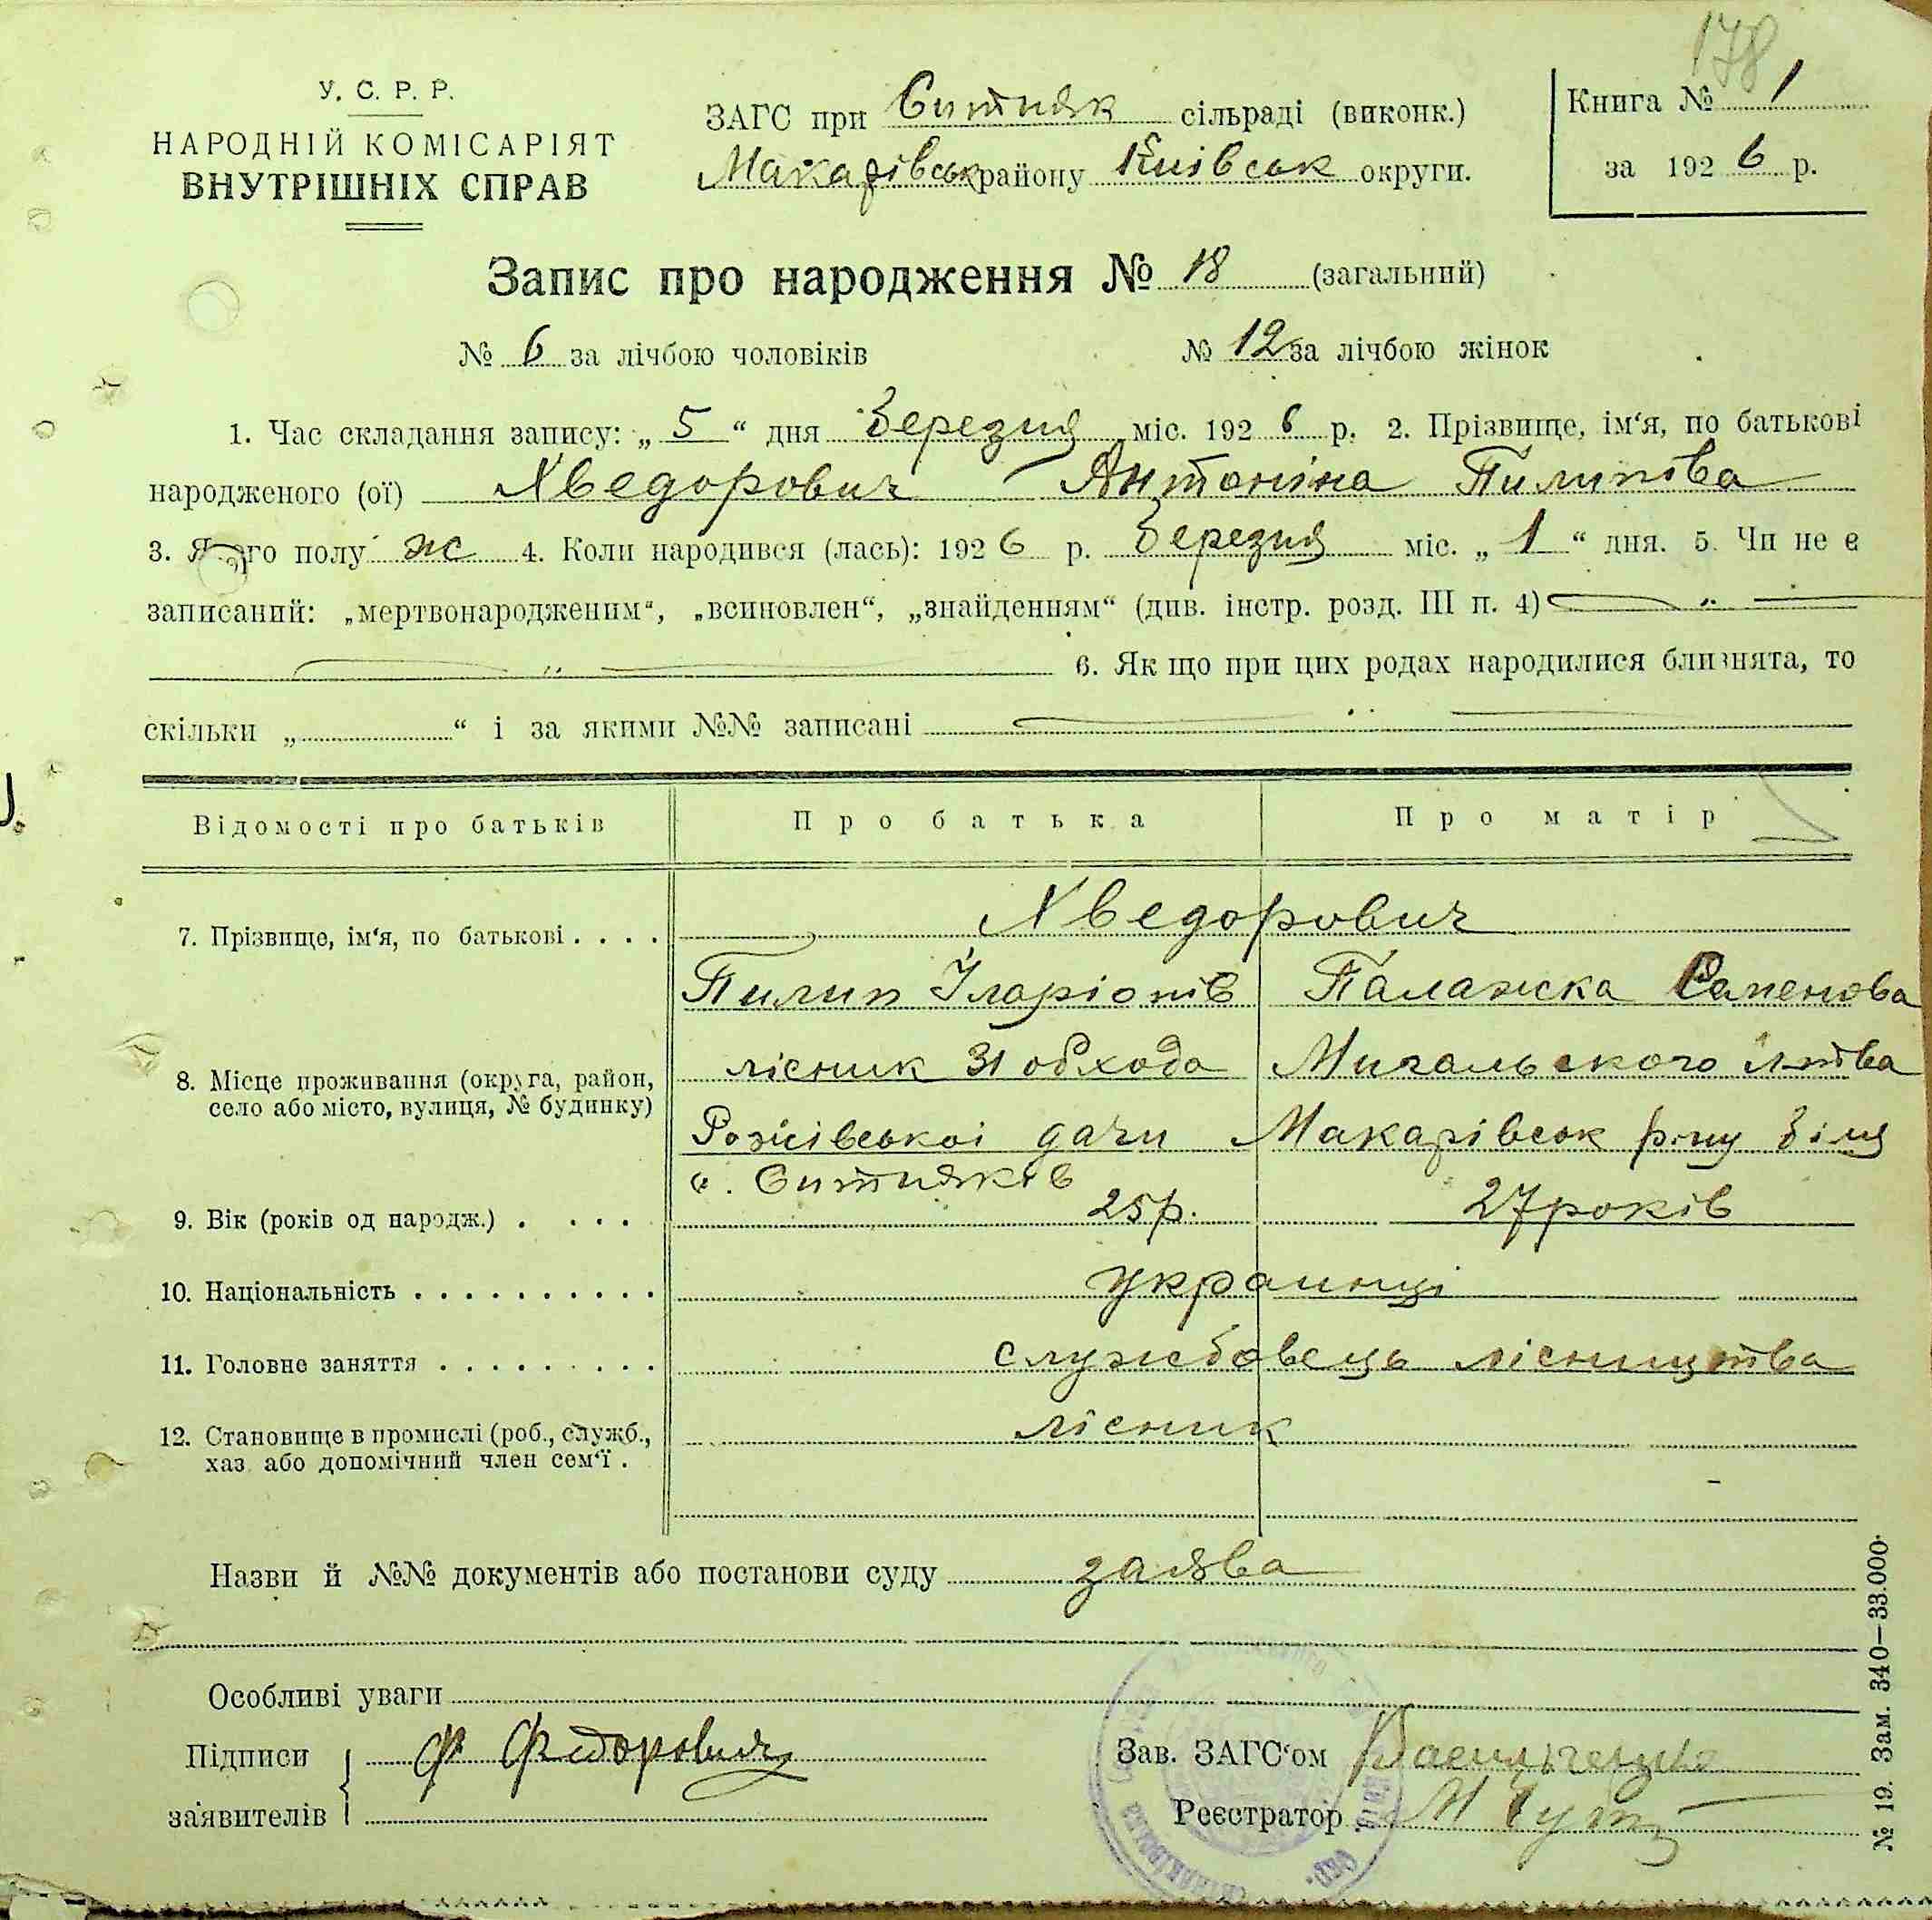 178
У. С. Р. Р.
НАРОДНІЙ КОМІСАРІЯТ
ВНУТРІШНІХ СПРАВ
ЗАГС при Ситняк сільраді (виконк.)
Макарівськ району Київськ округи.
Книга № 1
за 1926 р.
Запис про народження № 18 (загальний)
№ 6 за лічбою чоловіків № 12 за лічбою жінок
1. Час складання запису: „ 5 “ дня Березня міс. 1926 р. 2. Прізвище, ім‘я, по батькові
народженого (ої) Хведорович Антоніна Пилипова
3. Якого полу жс 4. Коли народився (лась): 1926 р. Березня міс. „ 1 “ дня. 5. Чи не є
записаний: „мертвонародженим“, „всиновлен“, „знайденням“ (див. інстр. розд. III п. 4) — „ —
— „ — 6. Як що при цих родах народилися близнята, то
скільки „ “ і за якими №№ записані
Відомості про батьків Про батька Про матір
7. Прізвище, ім‘я, по батькові . . . . Хведорович
Пилип Іларіонів Палажка Семенова
8. Місце проживання (округа, район, село або місто, вулиця, № будинку) лісник 31 обхода Мигальського л-тва
Рожівської дачи Макарівськ р-ну біля
с. Ситняків
9. Вік (років од народж.) . . . . 25 р. 27 років
10. Національність . . . . . . . . . . украинці
11. Головне заняття . . . . . . . . . службовець лісництва
12. Становище в промислі (роб., служб., лісник
хаз. або допомічний член сем‘ї .
Назви й №№ документів або постанови суду заява
Особливі уваги
Підписи Ф Федорович
заявителів
Зав. ЗАГС‘ом Васильченко
Реєстратор М
№ 19. Зам. 340—33.000.